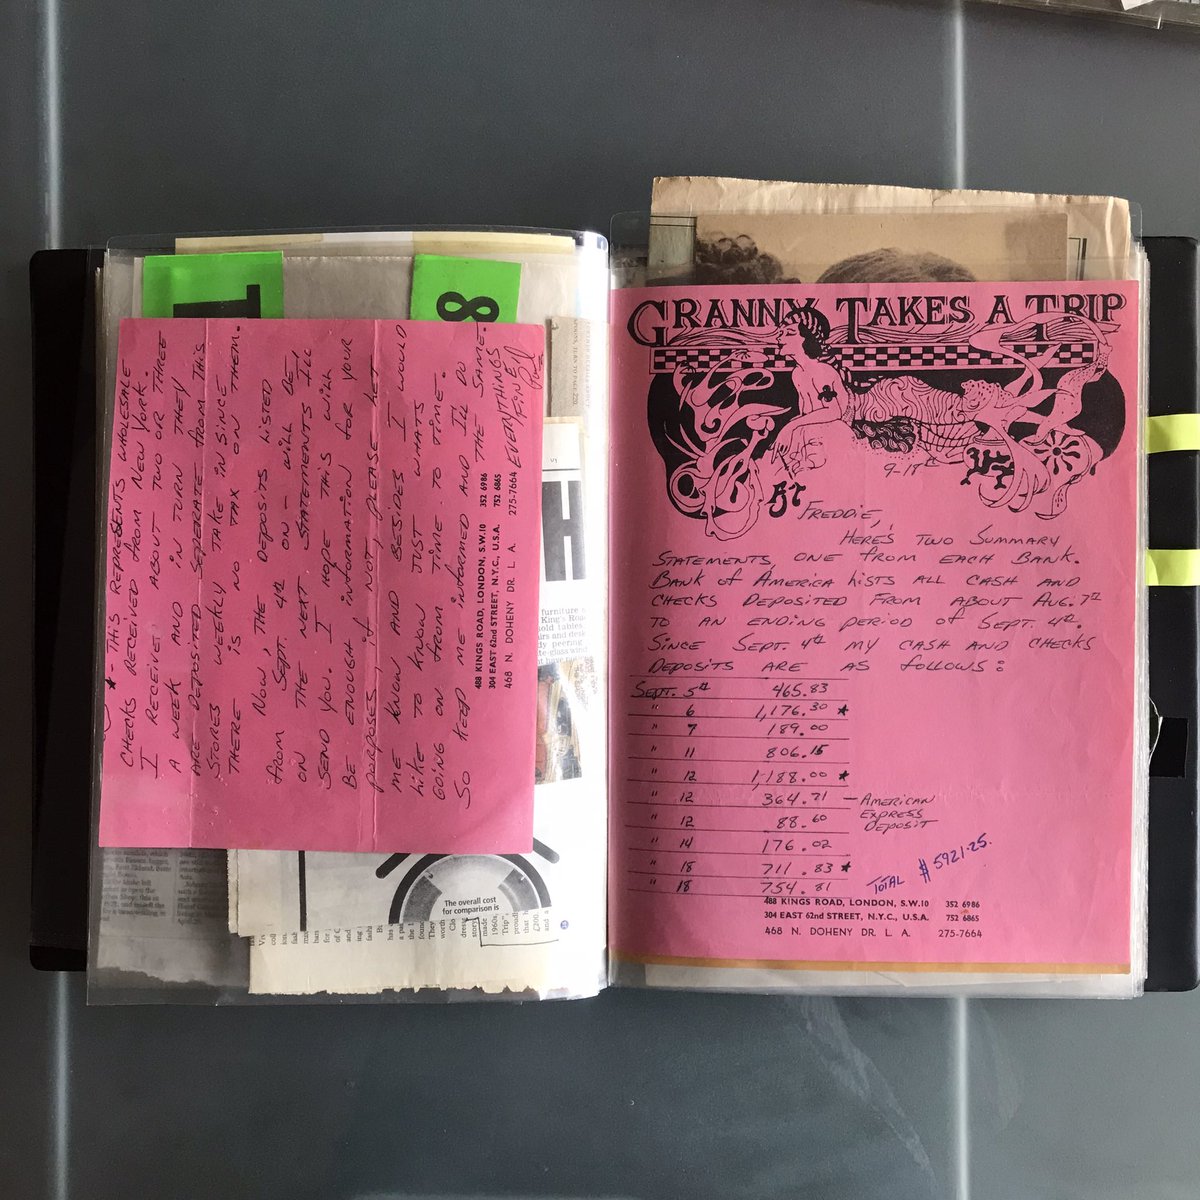 GRANNY TAKES A TRIP
9-18th
FREDDIE,
HERE'S TWO SUMMARY
STATEMENTS, ONE FROM EACH BANK.
BANK OF AMERICA LISTS ALL CASH AND
CHECKS DEPOSITED FROM ABOUT AUG. 7th
TO AN ENDING PERIOD OF SEPT. 4th.
SINCE SEPT. 4th MY CASH AND CHECKS
DEPOSITS ARE AS FOLLOWS:
SEPT. 5th 465.83
" 6 1,176.30 *
" 7 189.00
" 11 806.15
" 12 1,188.00 *
" 12 364.71 — AMERICAN
EXPRESS
DEPOSIT
" 12 88.60
" 14 176.02
" 18 711.83 *
" 18 754.81
TOTAL $5921.25.
488 KINGS ROAD, LONDON, S.W.10 352 6986
304 EAST 62nd STREET, N.Y.C., U.S.A. 752 6865
468 N. DOHENY DR. L. A. 275-7664
* - THIS REPRESENTS WHOLESALE
CHECKS RECEIVED FROM NEW YORK.
I RECEIVE ABOUT TWO OR THREE
A WEEK AND IN TURN THEY
ARE DEPOSITED SEPERATE FROM THIS
STORES WEEKLY TAKE IN SINCE
THERE IS NO TAX ON THEM.
NOW, THE DEPOSITS LISTED
FROM SEPT. 4th ON - WILL BE
ON THE NEXT STATEMENTS ILL
SEND YOU. I HOPE THIS WILL
BE ENOUGH INFORMATION FOR YOUR
PURPOSES. IF NOT, PLEASE LET
ME KNOW AND BESIDES I WOULD
LIKE TO KNOW JUST WHATS
GOING ON FROM TIME TO TIME.
SO KEEP ME INFORMED AND ILL DO
THE SAME.
EVERYTHINGS
FINE!
488 KINGS ROAD, LONDON, S.W.10 352 6986
304 EAST 62nd STREET, N.Y.C., U.S.A. 752 6865
468 N. DOHENY DR. L. A. 275-7664
8
H
The overall cost
for comparison is